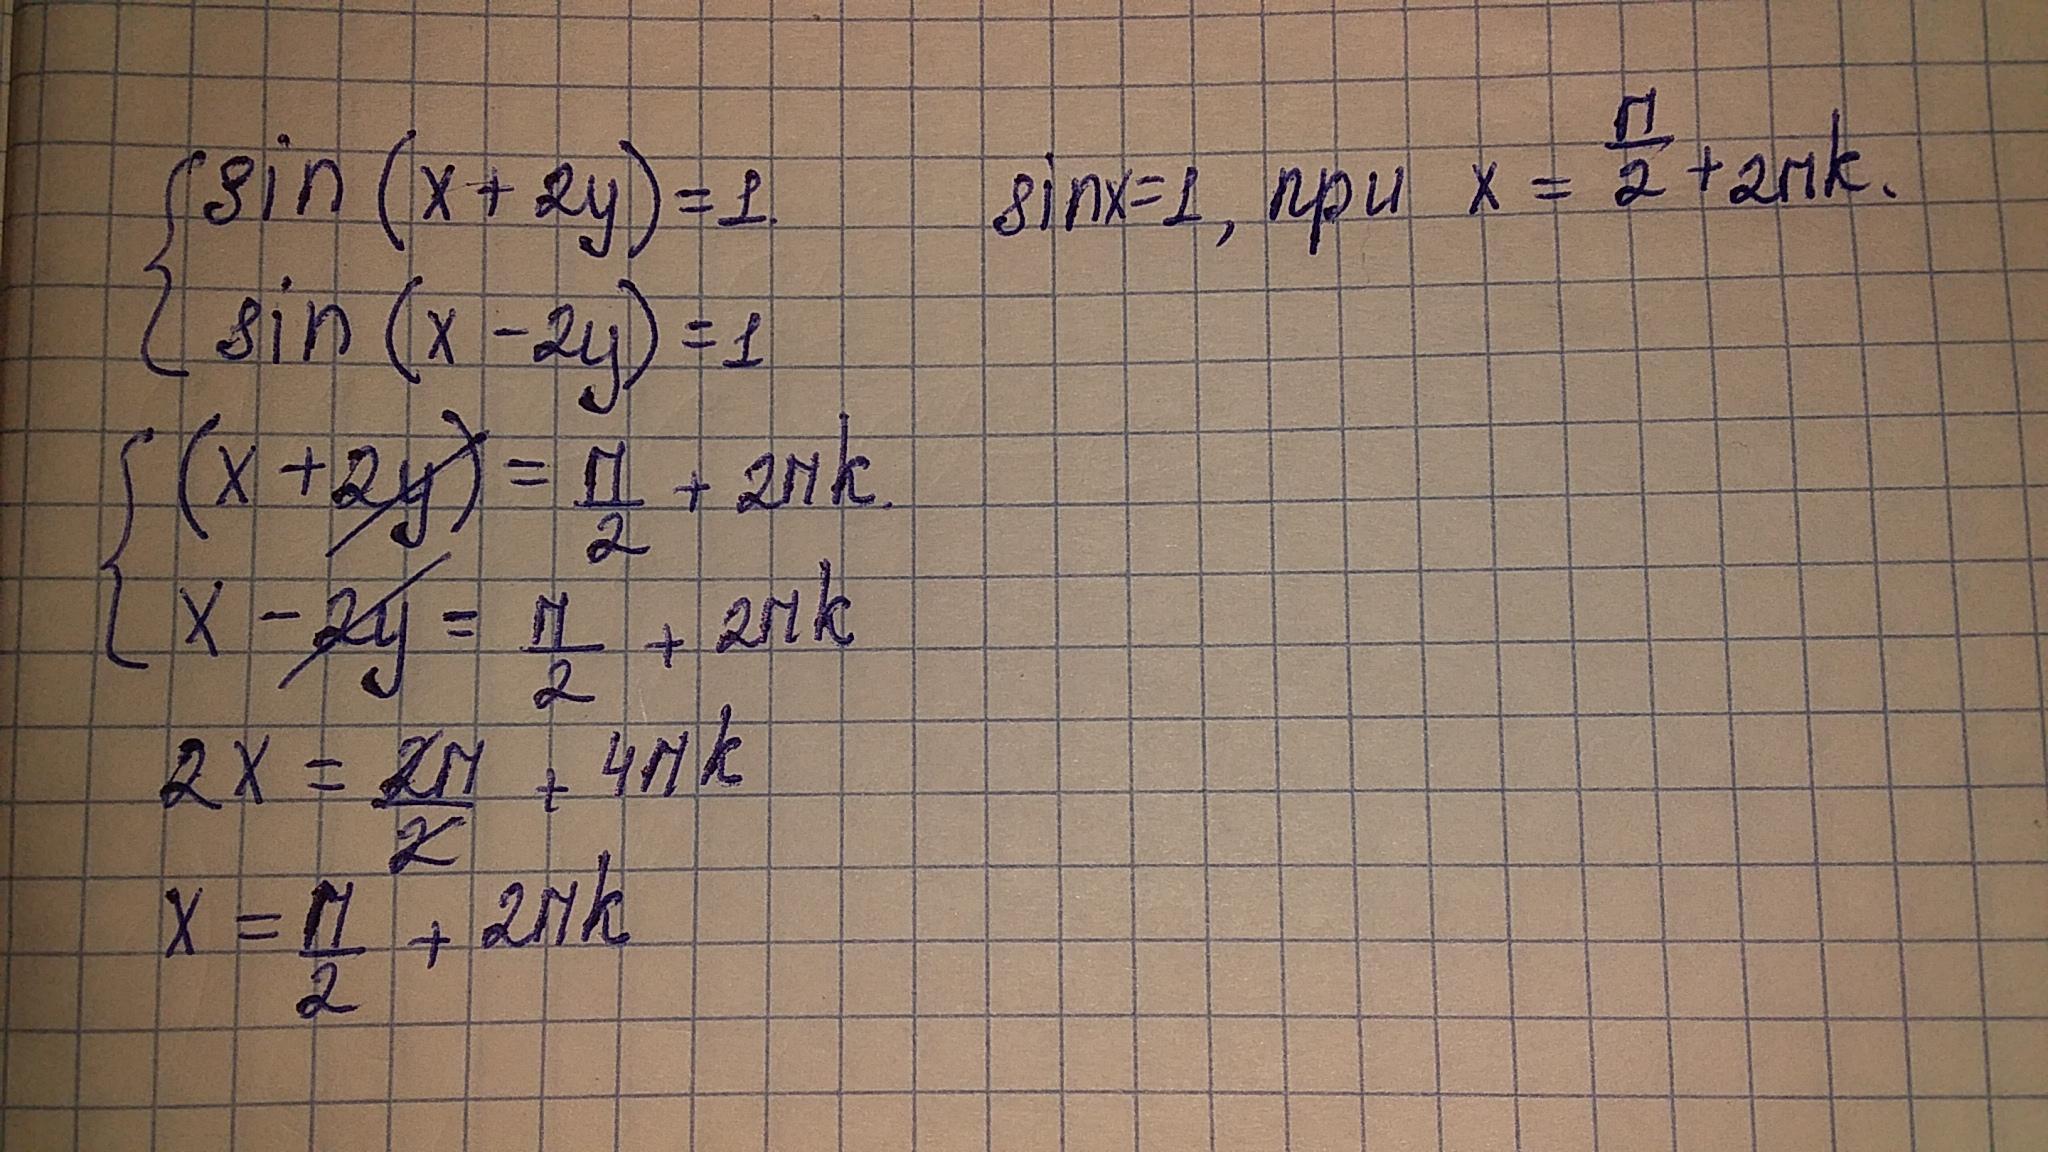 { sin (x + 2y) = 1.
sin (x - 2y) = 1
sinx=1, при x = π/2 + 2πk.
{ (x + 2y) = π/2 + 2πk.
x - 2y = π/2 + 2πk
2x = 2π/2 + 4πk
x = π/2 + 2πk